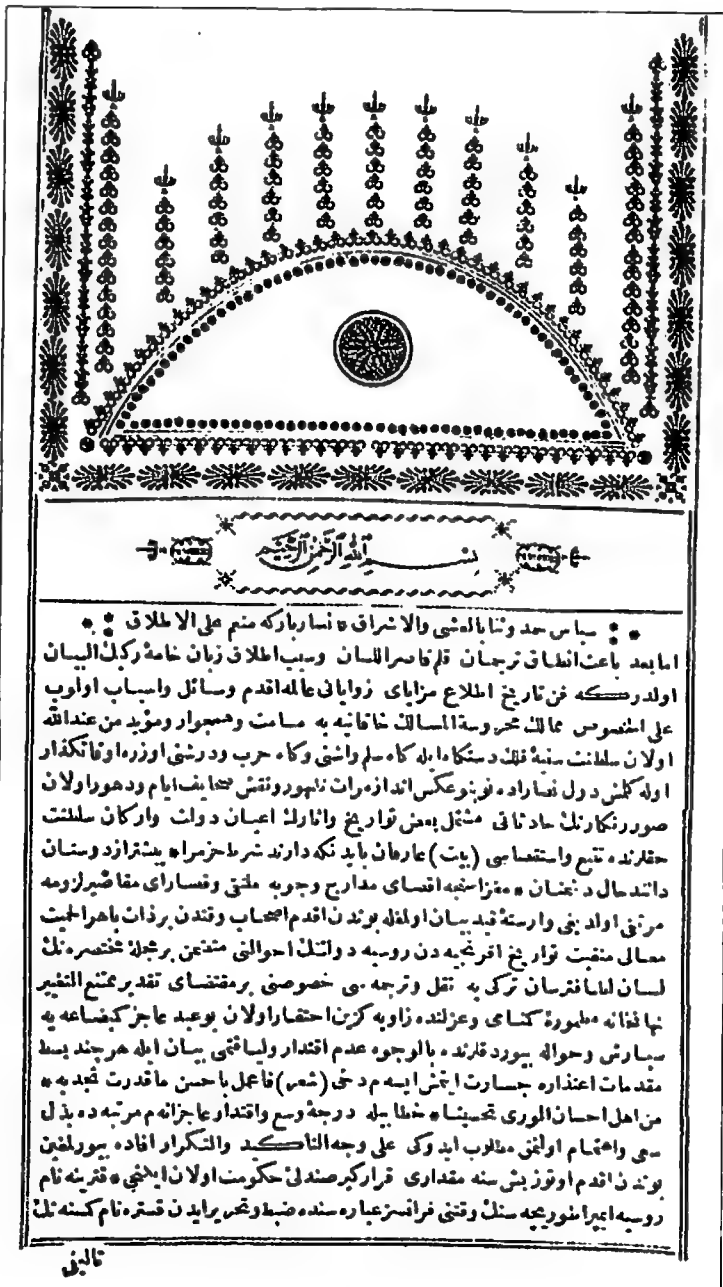 بسم الله الرحمن الرحيم
سپاس حمد وثنا بالعشى والاشراق * نسار باركه منعم على الاطلاق
اما بعد باعث انطاق ترجمان قلم قاصر اللسان وسبب اطلاق زبان خامۀ ركيك البيان
اولدركه فن تاريخ اطلاع مزاياى زواياى عالمه اقدم وسائل واسباب اولوب
على الخصوص ممالك محروسة المسالك خاقانيه به مسامت وهمجوار ومؤيد من عندالله
اولان سلطنت سنيۀ فلك دستكاه ايله كاه سلم واشتى وكاه حرب ودرشتى اوزره اوقاتكذار
اوله كلمش دول نصاراده نوبنو عكس اندازۀ مرات ظهور ونقش صحايف ايام ودهور اولان
صور رنكارنك حادثاتى مشتمل بعض تواريخ واثارك اعيان دولت واركان سلطنت
حقلرنده تتبع واستقصاسى (بيت) عارفان بايد نكه دارند شرط حزم را * بيشتر از دوستان
دانند حال دشمنان * مغزاسنجه اقصاى مدارج وجوبه ملتقى وقصاراى مقاصير لزومه
مرتقى اولديغى وارستۀ قيد بيان اولمغله بوندن اقدم اصحاب وقتدن بر ذات باهر الحميت
معالى منقبت تواريخ افرنجيه دن روسيه دولتنك احوالنى متضمن بر مجلۀ مختصره نك
لسان لطافترسان تركى به نقل وترجمه سى خصوصنى بر مقتضاى تقدير ممتنع التغيير
نهانخانه مطمورۀ كمنامى وعزلتده زاويه كزين احتقار اولان بو عبد عاجز كم بضاعه يه
سپارش وحواله بيوردقلرنده بالوجوه عدم اقتدار ولياقتمى بيان ايله هر چند بسط
مقدمات اعتذاره جسارت ايتمش ايسه م دخى (شعر) فاعمل باحسن ما قدرت تجد به *
من اهل احسان الورى تحسينا * خطابيله درجۀ وسع واقتدار عاجزانه م مرتبه ده بذل
سعى واهتمام اولنمق مطلوب ايدوكى على وجه التأكيد والتكرار افاده بيورلمغين
بوندن اقدم اوتوز بش سنه مقدارى قراركير صندلئ حكومت اولان ايكنجى * قترينه نام
روسيه ايمپراطوريچه سنك وقتنى فرانسز عباره سنده ضبط وتحرير ايدن قستره نام كمسنه نك
تاليفى